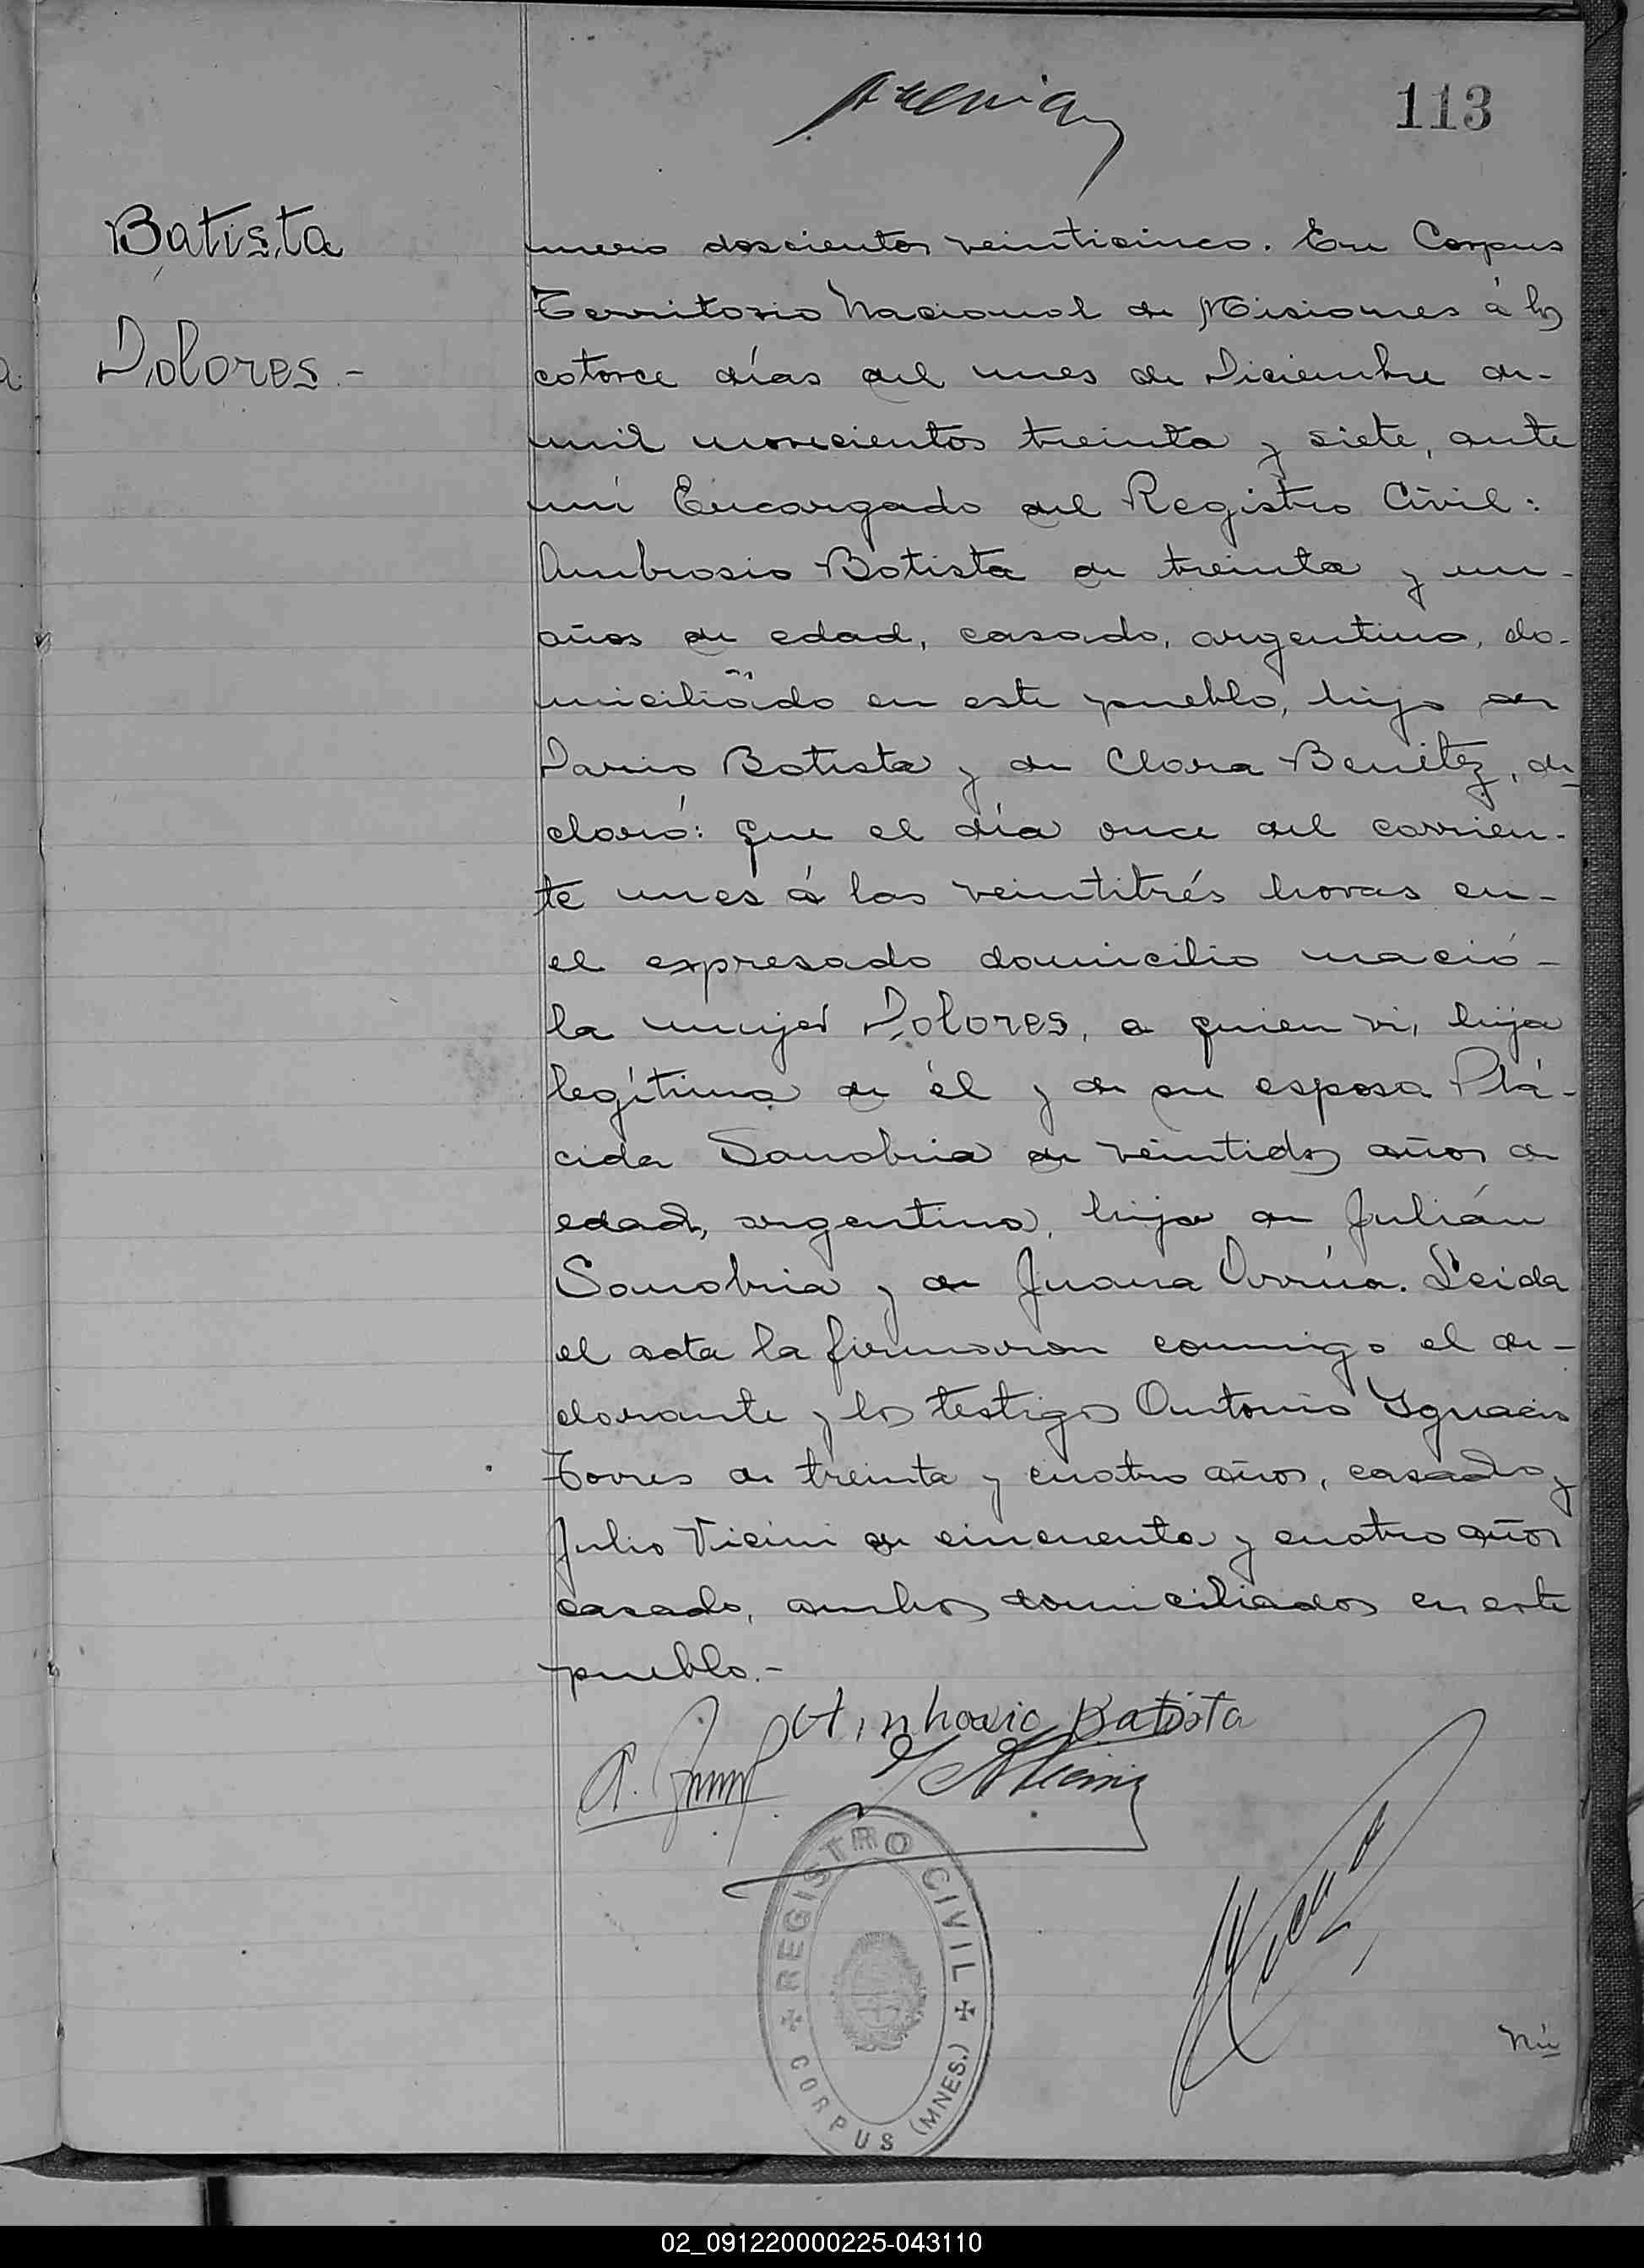 113
Batista
Dolores.-
mero doscientos veinticinco. En Corpus
Territorio Nacional de Misiones á los
catorce días del mes de Diciembre de-
mil novecientos treinta y siete, ante
mí Encargado del Registro Civil:
Ambrosio Batista de treinta y un-
años de edad, casado, argentino, do-
miciliado en este pueblo, hijo de
Dario Batista y de Clara Benítez, de
claró: Que el día once del corrien-
te mes á las veintitrés horas en-
el expresado domicilio nació-
la mujer Dolores, a quien vi, hija
legítima de él y de su esposa Plá-
cida Sanabria de veintidos años de
edad, argentina, hija de Julián
Sanabria y de Juana Orrúa. Leida
el acta la firmaron conmigo el de-
clarante y los testigos Antonio Ygnacio
Torres de treinta y cuatro años, casado y
Julio Vicini de cincuenta y cuatro años
casado, ambos domiciliados en este
pueblo.-
Batista
REGISTRO CIVIL
CORPUS (MNES.)
Nú
02_091220000225-043110